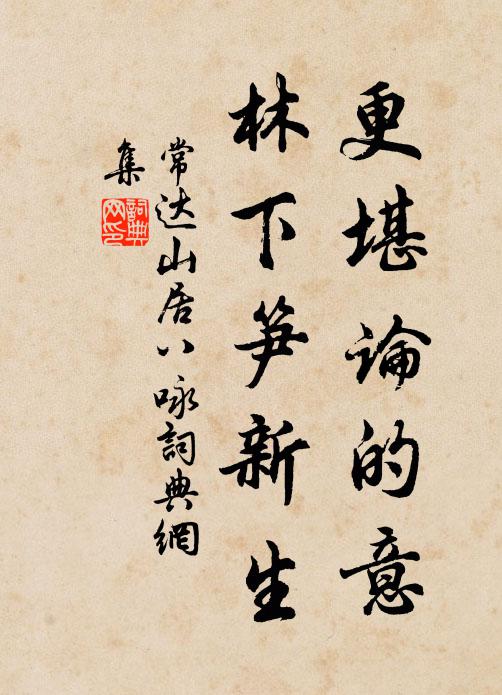 更堪論的意
林下笋新生
常达山居八咏詞典網
集
詞典网印